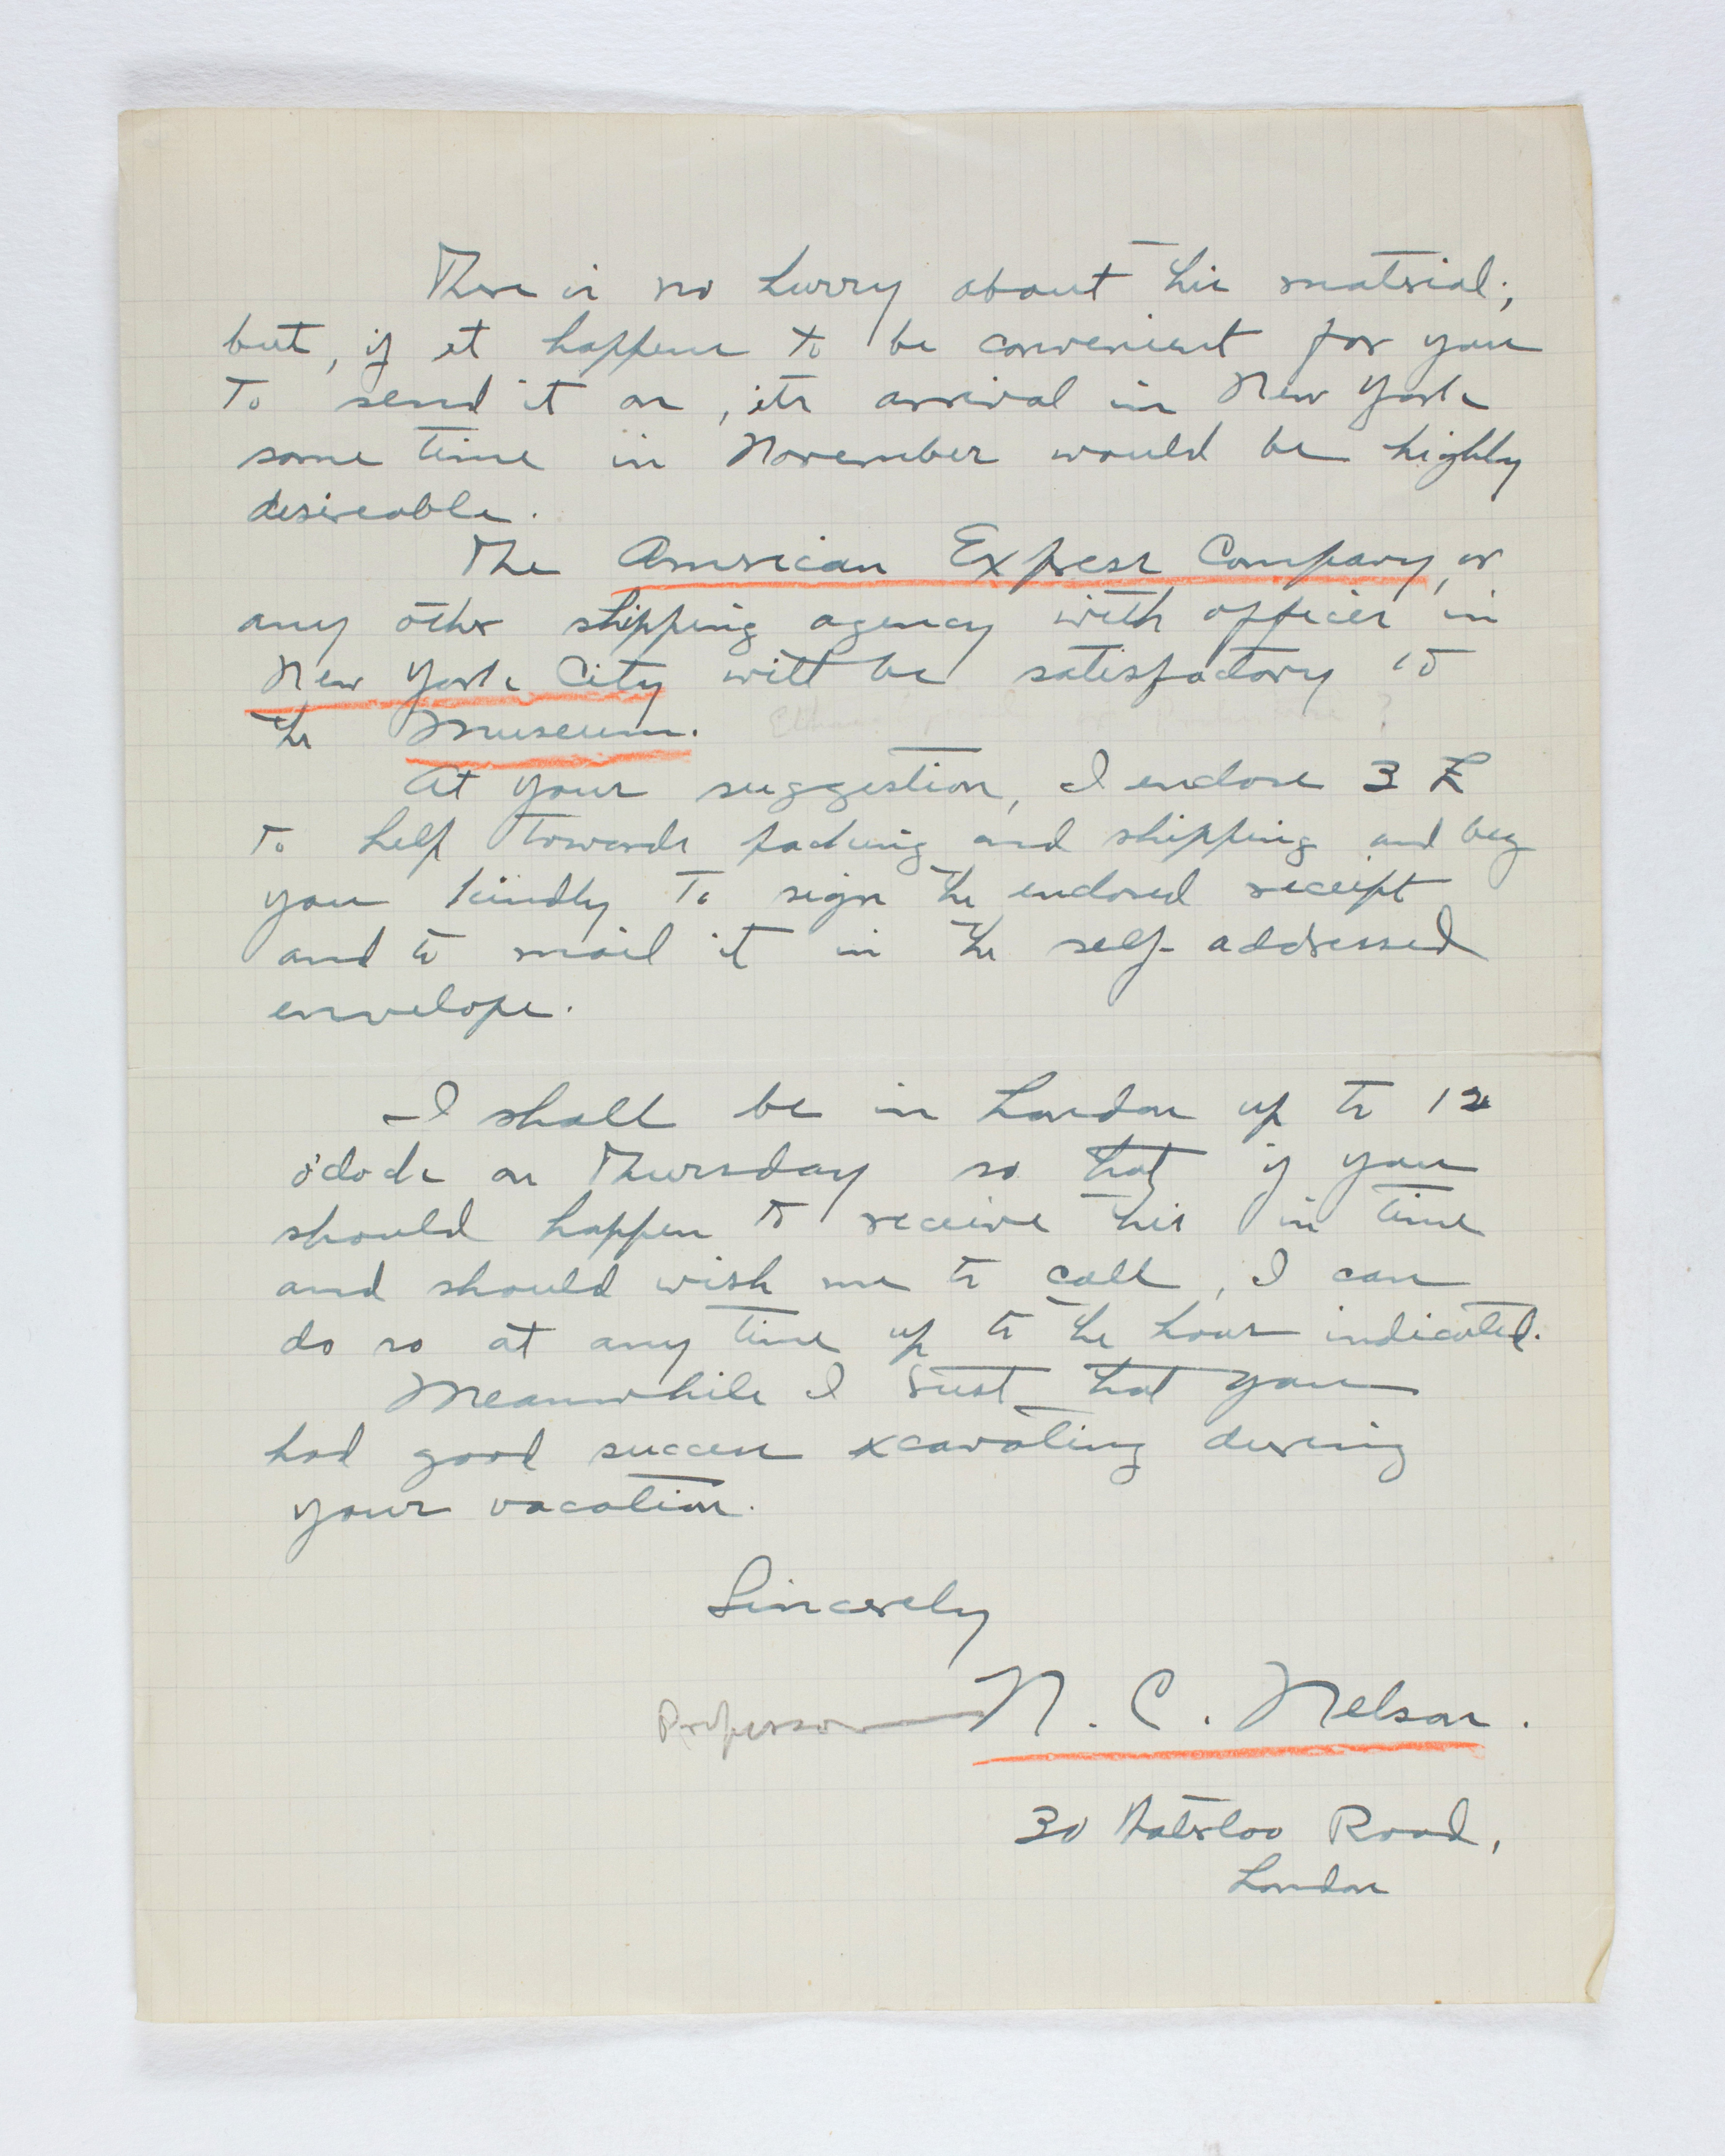 There is no hurry about this material;
but, if it happens to be convenient for you
to send it on, its arrival in New York
some time in November would be highly
desireable.
The American Express Company, or
any other shipping agency with offices in
New York City will be satisfactory to
the Museum. ?
At your suggestion, I enclose 3 £
to help towards packing and shipping and beg
you kindly to sign the enclosed receipt
and to mail it in the self-addressed
envelope.
I shall be in London up to 12
o'clock on Thursday so that if you
should happen to receive this in time
and should wish me to call, I can
do so at any time up to the hour indicated.
Meanwhile I trust that you
had good success excavating during
your vacation.
Sincerely
Professor N. C. Nelson.
30 Waterloo Road,
London